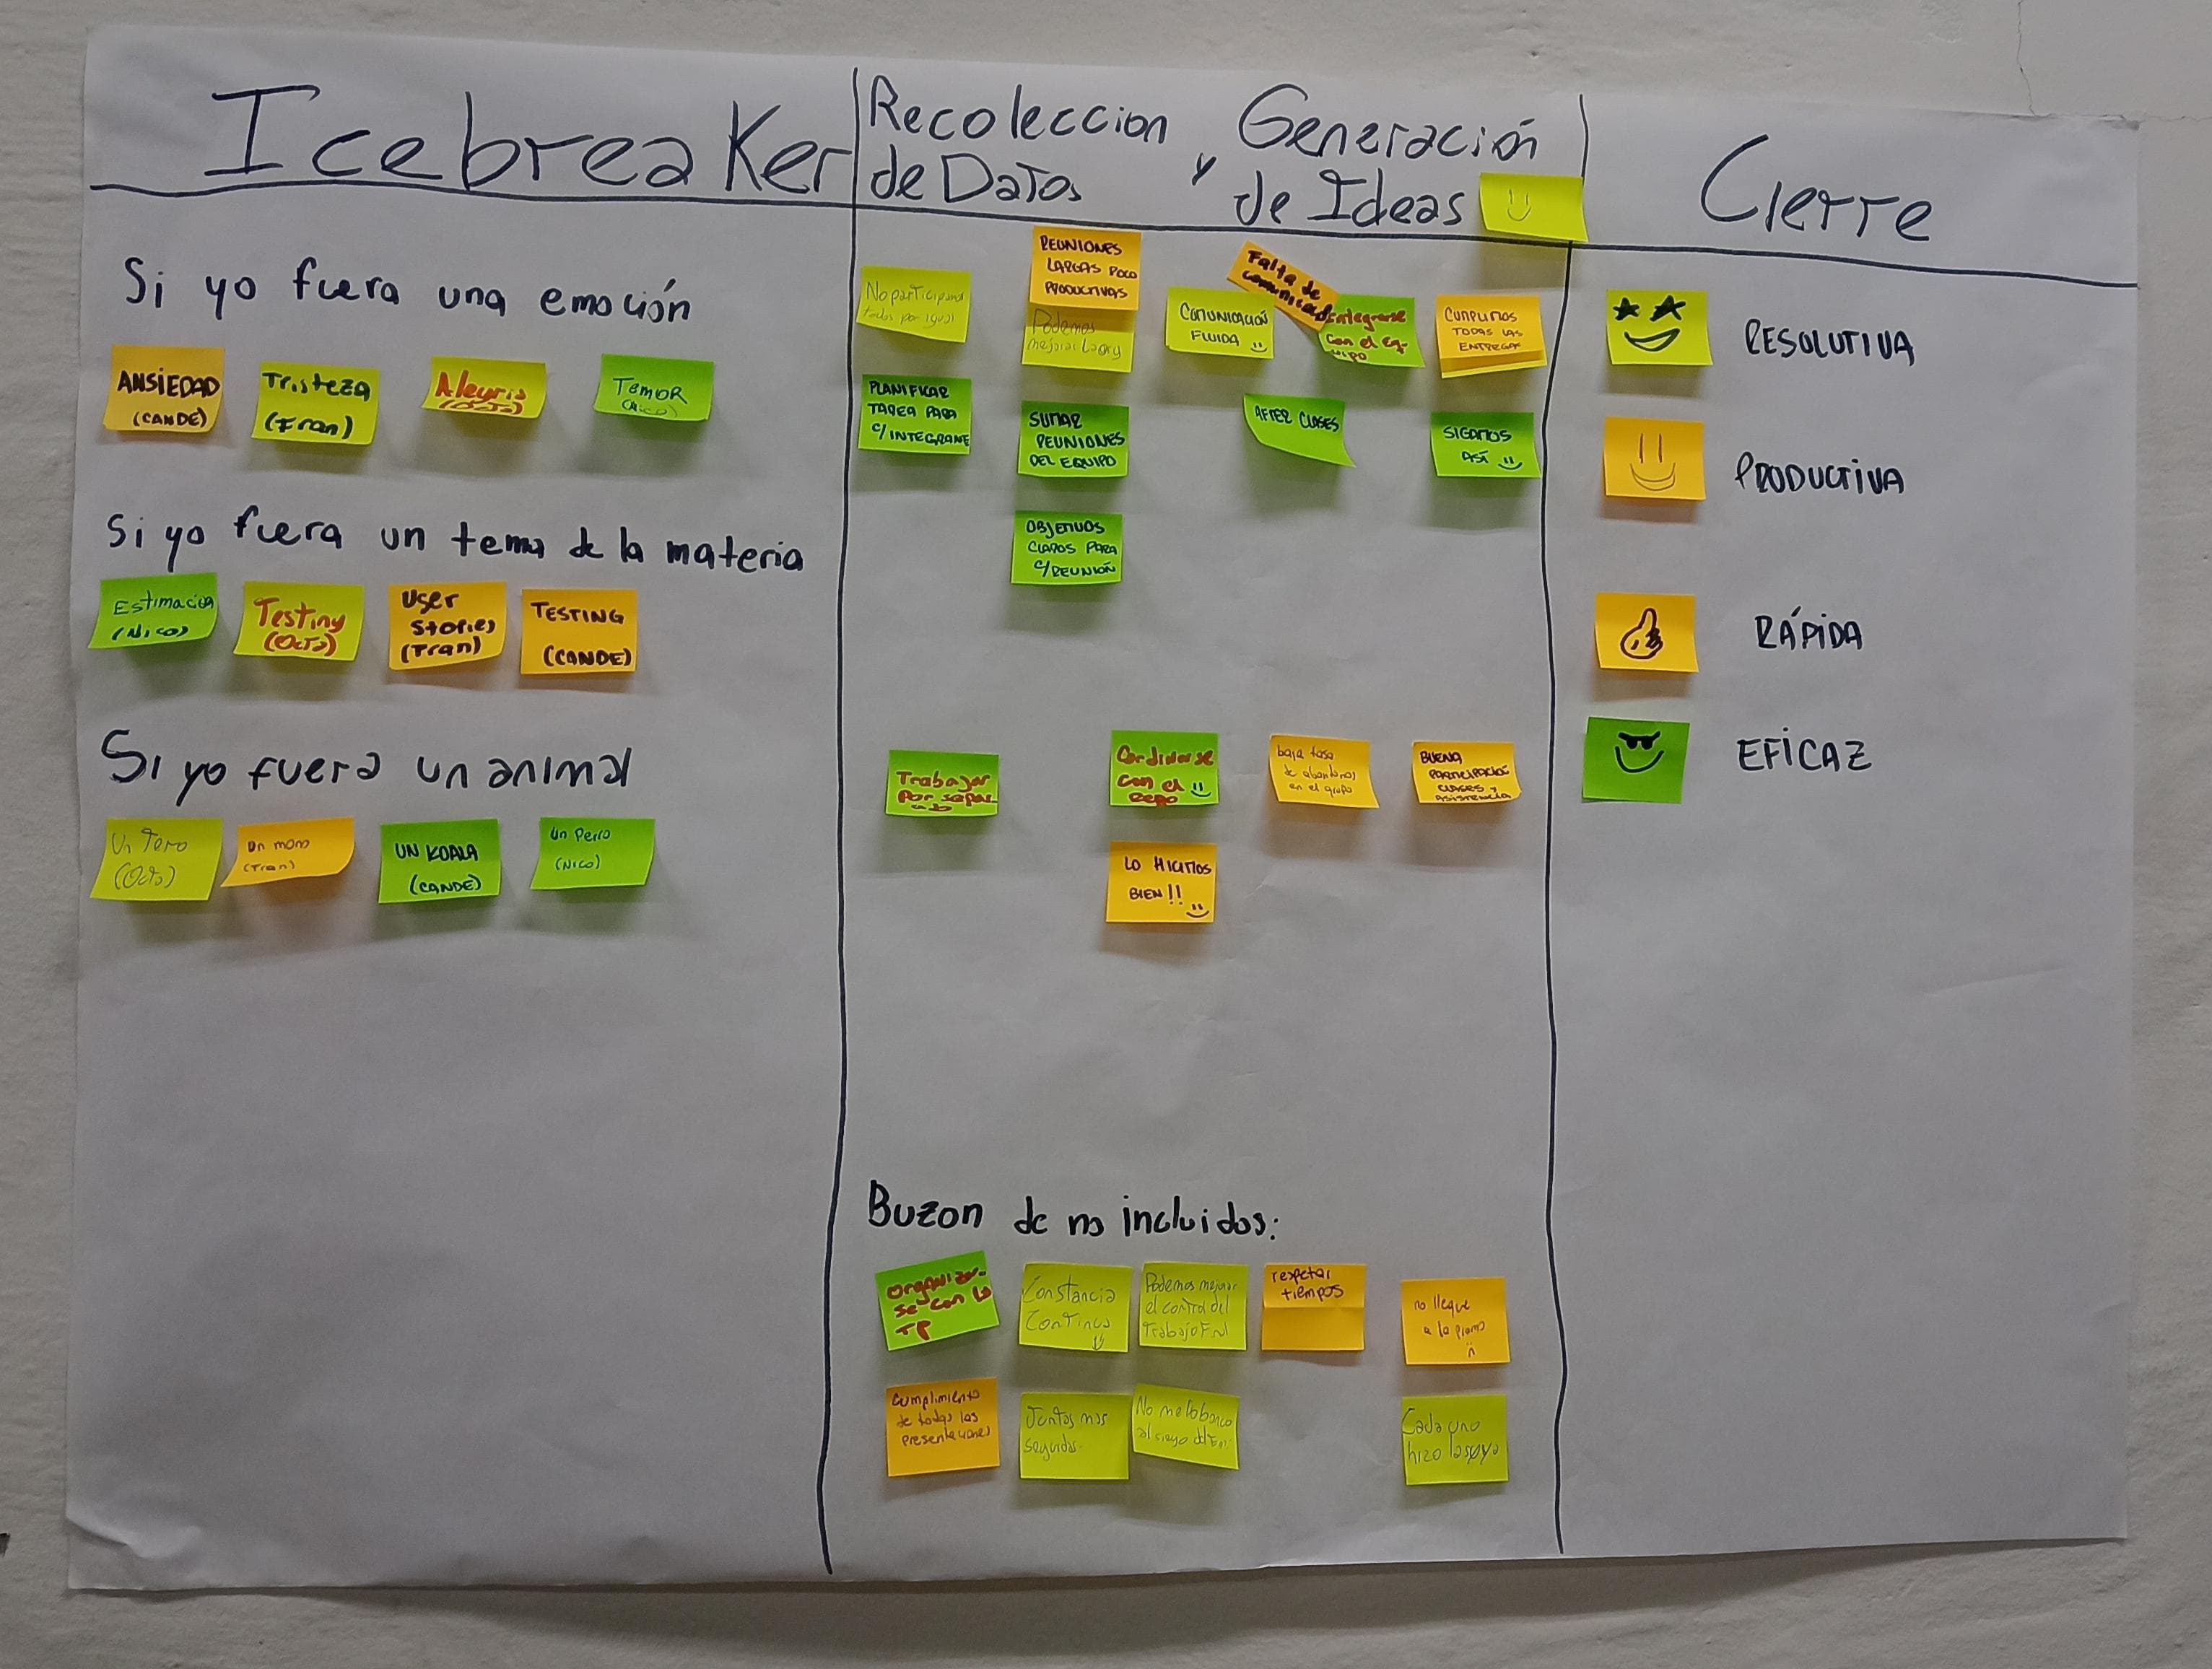 Icebreaker
Recoleccion
de Datos
y
Generación
de Ideas
Cierre
Si yo fuera una emoción
ANSIEDAD
(CANDE)
Tristeza
(Fran)
Alegria
(Octa)
Temor
(Nico)
Si yo fuera un tema de la materia
Estimacion
(Nico)
Testing
(Octa)
User
Stories
(Fran)
TESTING
(CANDE)
Si yo fuera un animal
Un Tero
(Octa)
Un mono
(Fran)
UN KOALA
(CANDE)
Un Perro
(Nico)
No participamos
todos por igual
REUNIONES
LARGAS POCO
PRODUCTIVAS
Podemos
mejorar la org
COMUNICACIÓN
FLUIDA
Falta de
comunicacion
integrarse
con el eq-
uipo
CUMPLIMOS
TODAS LAS
ENTREGAS
PLANIFICAR
TAREA PARA
C/INTEGRANTE
SUMAR
REUNIONES
DEL EQUIPO
AFTER CLASES
SIGAMOS
ASÍ
OBJETIVOS
CLAROS PARA
C/REUNIÓN
Trabajar
por separ-
ado
Cordinarse
con el
repo
baja tasa
de abandonos
en el grupo
BUENA
PARTICIPACIÓN
CLASES Y
ASISTENCIA
LO HICIMOS
BIEN!!
Buzon de no incluidos:
organizar-
se con los
TP
Constancia
Continua
Podemos mejorar
el control del
Trabajo Final
respetar
tiempos
no llegue
a la promo
Cumplimiento
de todas las
presentaciones
Juntos mas
seguidos.
No me lo banco
al
Cada uno
hizo lo suyo
RESOLUTIVA
PRODUCTIVA
RÁPIDA
EFICAZ